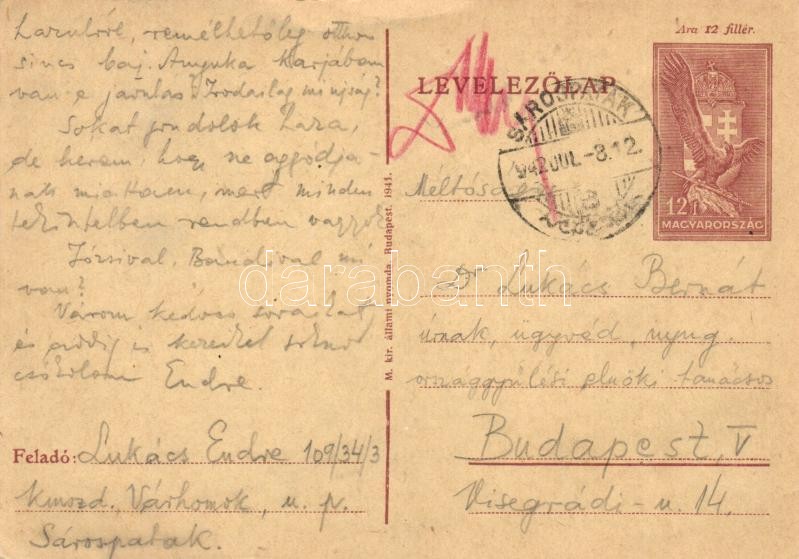 remélhetőleg otthon
sincs baj. Anyuka karjában
van e javulás? Irodailag mi újság?
Sokat gondolok haza,
de kérem, hogy ne aggódja-
nak miattam, mert minden
tekintetben rendben vagyok
Józsival, Bandival mi
van?
Várom kedves soraikat
és addig is kezeiket
csókolom Endre.
Feladó: Lukács Endre 109/34/3
kmozd, Várhomok, u. p.
Sárospatak.
M. kir. állami nyomda. Budapest, 1941.
Ára 12 fillér.
LEVELEZŐLAP
SÁROSPATAK
942 JUL. -8. 12
12 f
MAGYARORSZÁG
Méltóságos
Dr Lukács Bernát
úrnak, ügyvéd, nyug.
országgyűlési elnöki tanácsos
Budapest, V
Visegrádi-u. 14.
darabanth